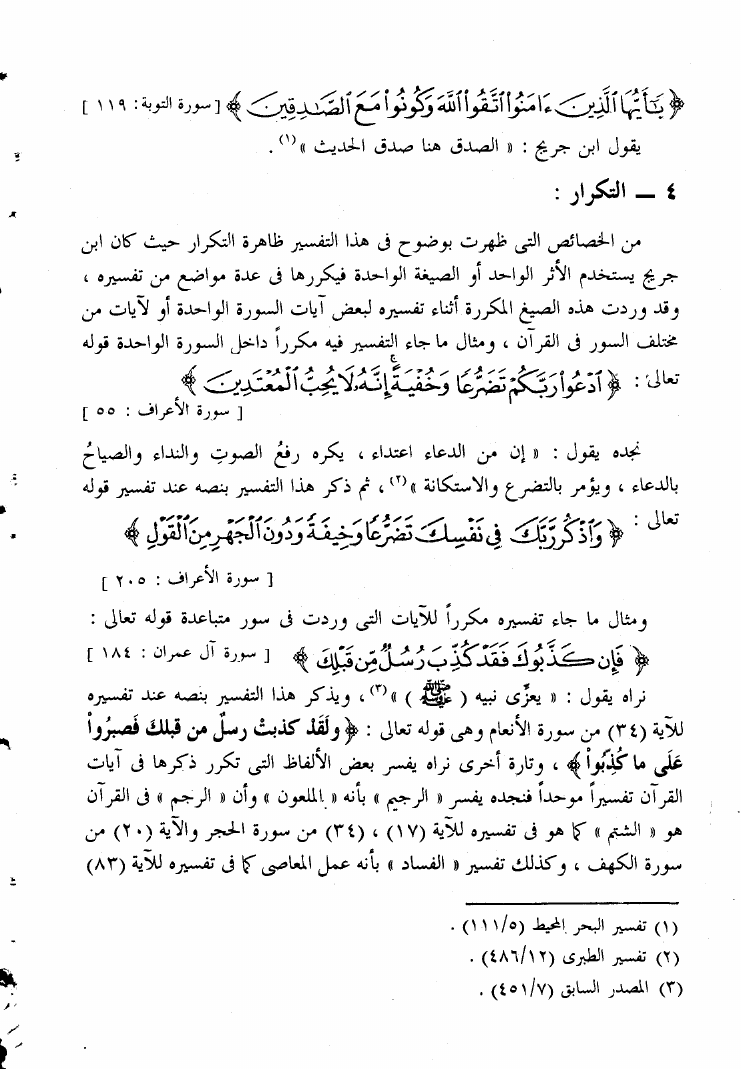 ﴿ يَـٰٓأَيُّهَا ٱلَّذِينَ ءَامَنُوا۟ ٱتَّقُوا۟ ٱللَّهَ وَكُونُوا۟ مَعَ ٱلصَّـٰدِقِينَ ﴾ [ سورة التوبة : ١١٩ ]
يقول ابن جريج : « الصدق هنا صدق الحديث »(١) .
٤ ــ التكرار :
من الخصائص التى ظهرت بوضوح فى هذا التفسير ظاهرة التكرار حيث كان ابن
جريج يستخدم الأثر الواحد أو الصيغة الواحدة فيكررها فى عدة مواضع من تفسيره ،
وقد وردت هذه الصيغ المكررة أثناء تفسيره لبعض آيات السورة الواحدة أو لآيات من
مختلف السور فى القرآن ، ومثال ما جاء التفسير فيه مكرراً داخل السورة الواحدة قوله
تعالى : ﴿ ٱدْعُوا۟ رَبَّكُمْ تَضَرُّعًا وَخُفْيَةً إِنَّهُۥ لَا يُحِبُّ ٱلْمُعْتَدِينَ ﴾
[ سورة الأعراف : ٥٥ ]
نجده يقول : « إن من الدعاء اعتداء ، يكره رفعُ الصوتِ والنداء والصياحُ
بالدعاء ، ويؤمر بالتضرع والاستكانة »(٢) ، ثم ذكر هذا التفسير بنصه عند تفسير قوله
تعالى : ﴿ وَٱذْكُر رَّبَّكَ فِى نَفْسِكَ تَضَرُّعًا وَخِيفَةً وَدُونَ ٱلْجَهْرِ مِنَ ٱلْقَوْلِ ﴾
[ سورة الأعراف : ٢٠٥ ]
ومثال ما جاء تفسيره مكرراً للآيات التى وردت فى سور متباعدة قوله تعالى :
﴿ فَإِن كَذَّبُوكَ فَقَدْ كُذِّبَ رُسُلٌ مِّن قَبْلِكَ ﴾ [ سورة آل عمران : ١٨٤ ]
نراه يقول : « يعزِّى نبيه ( ﷺ ) »(٣) ، ويذكر هذا التفسير بنصه عند تفسيره
للآية (٣٤) من سورة الأنعام وهى قوله تعالى : ﴿ ولَقَدْ كذبتْ رسلٌ من قبلكَ فَصبَرُوا
عَلَى ما كُذِّبُوا ﴾ ، وتارة أخرى نراه يفسر بعض الألفاظ التى تكرر ذكرها فى آيات
القرآن تفسيراً موحداً فنجده يفسر « الرجيم » بأنه « الملعون » وأن « الرجم » فى القرآن
هو « الشتم » كما هو فى تفسيره للآية (١٧) ، (٣٤) من سورة الحجر والآية (٢٠) من
سورة الكهف ، وكذلك تفسير « الفساد » بأنه عمل المعاصى كما فى تفسيره للآية (٨٣)
(١) تفسير البحر المحيط (١١١/٥) .
(٢) تفسير الطبرى (٤٨٦/١٢) .
(٣) المصدر السابق (٤٥١/٧) .